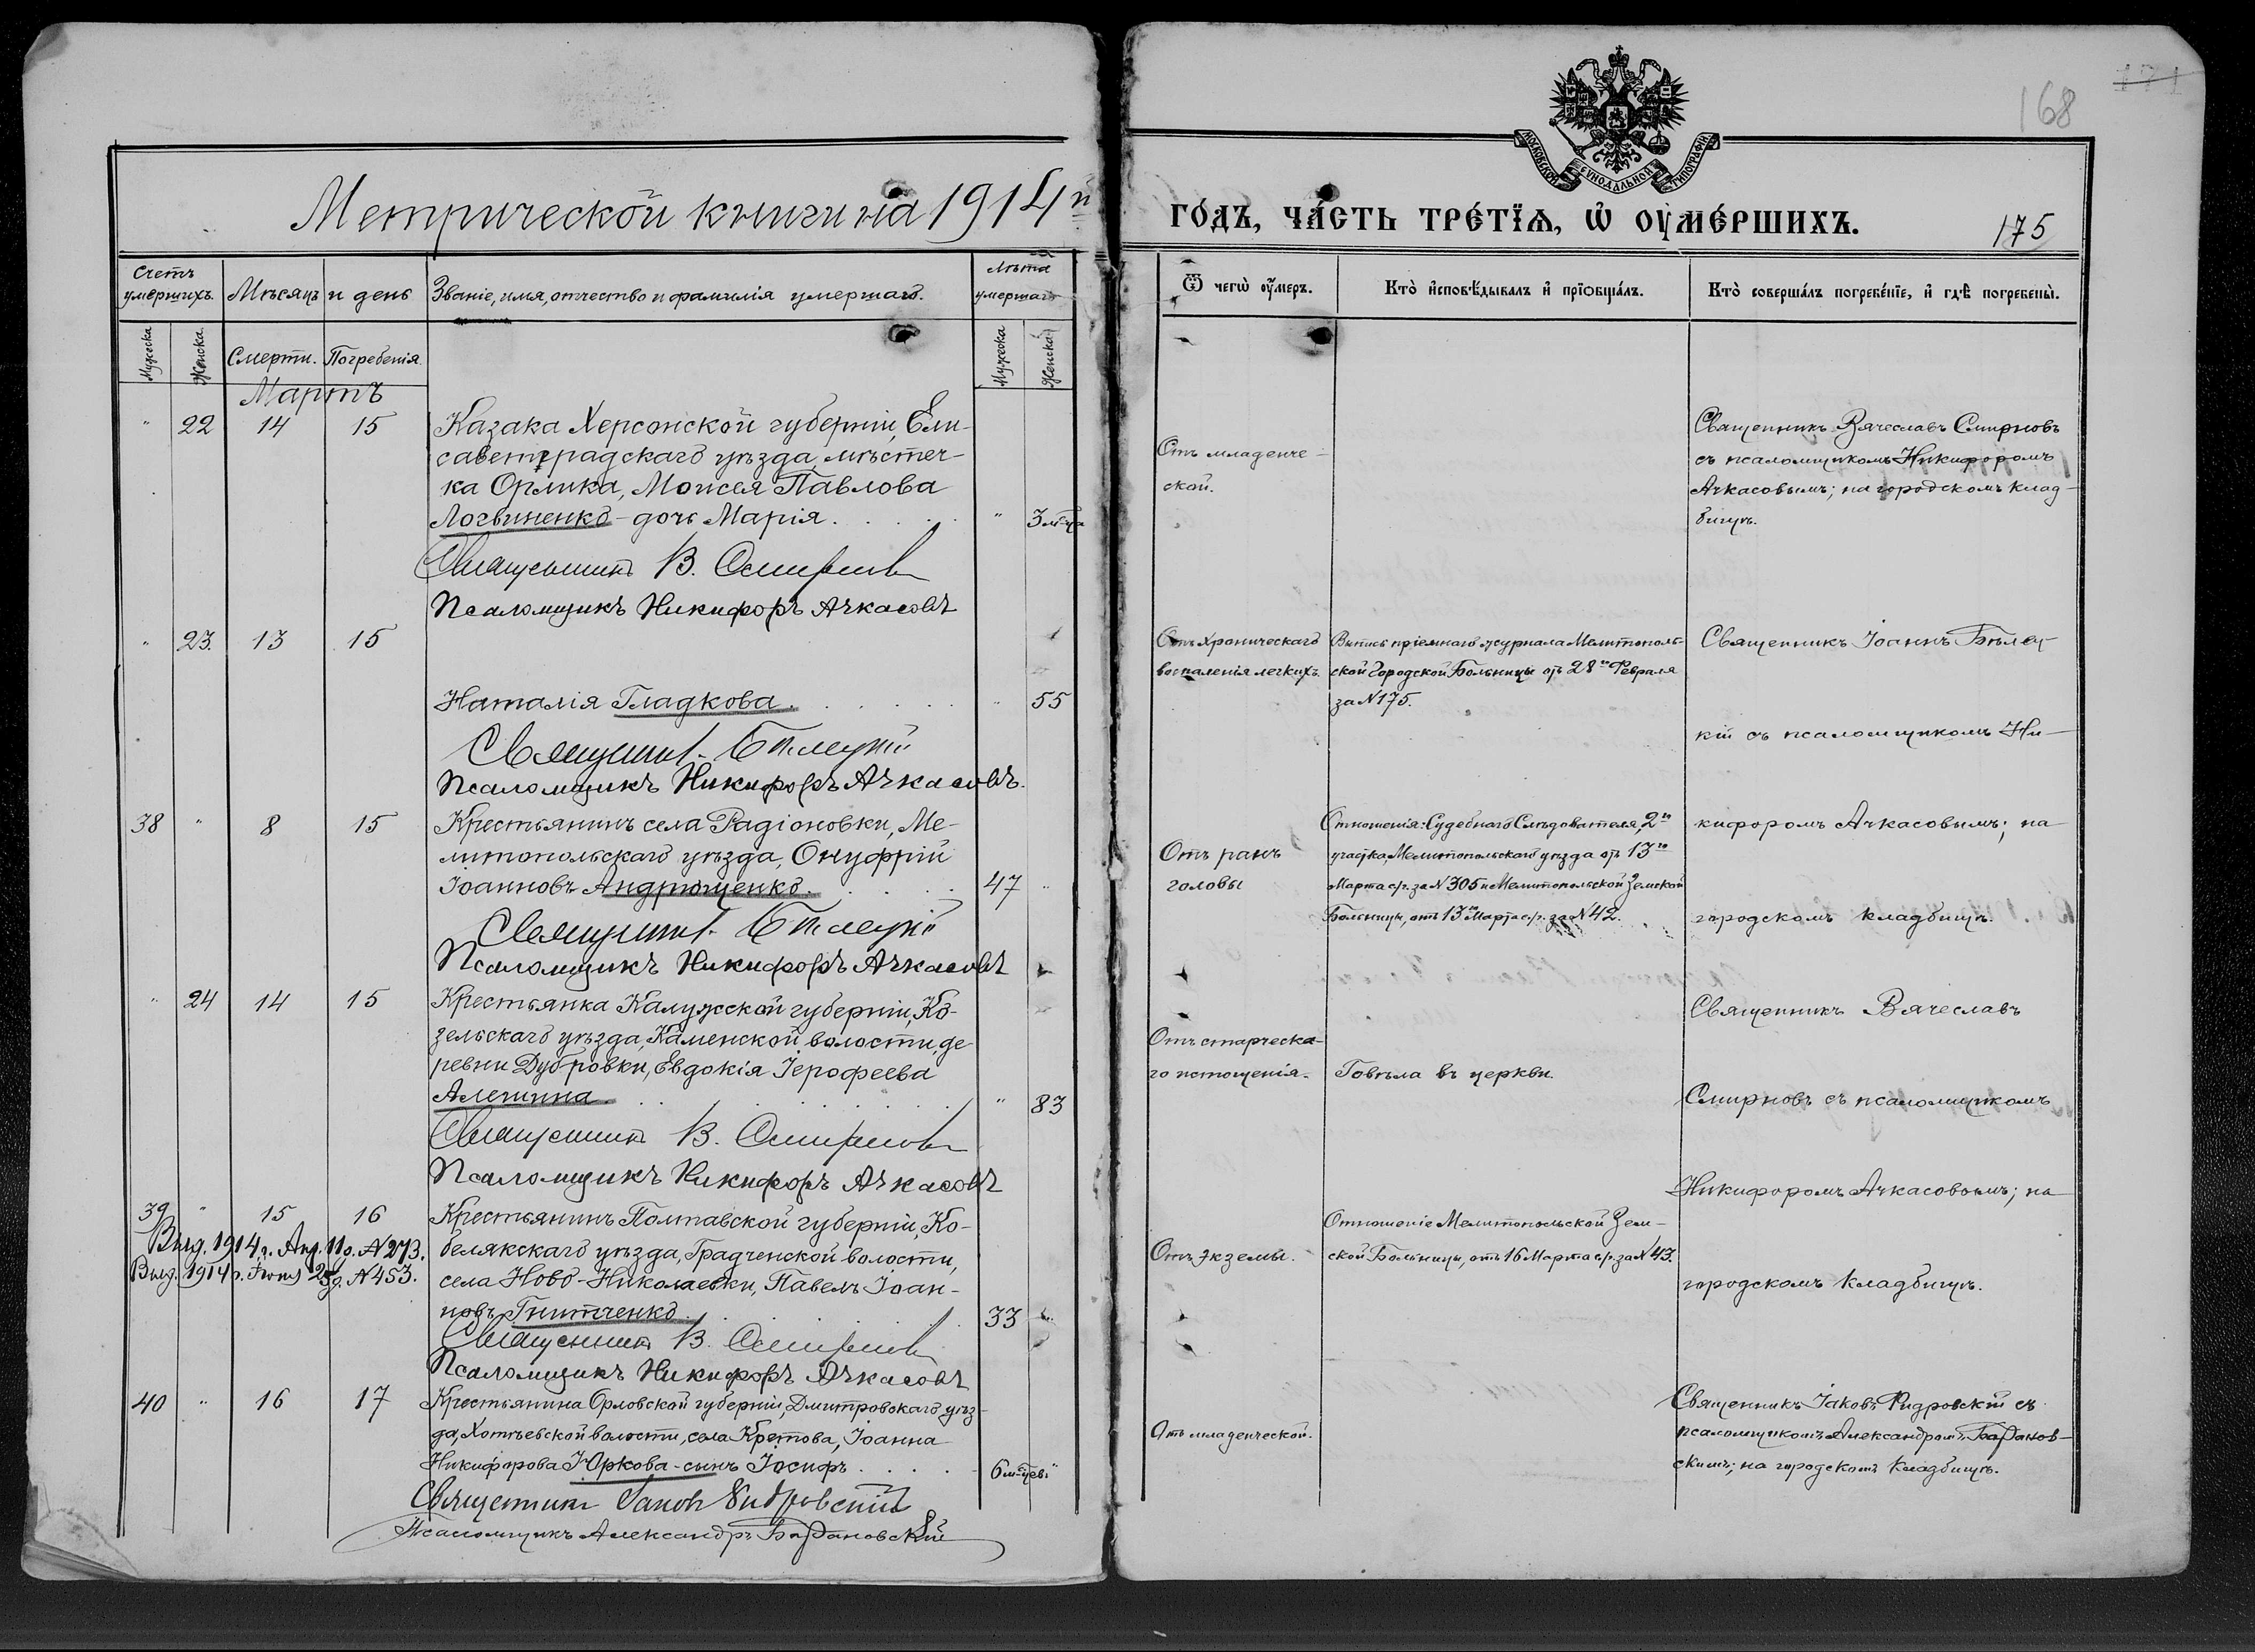 168
171
МОСКОВСКОЙ СѴНОДАЛЬНОЙ ТИПОГРАФІИ
Метрической книги на 1914й
Счетъ умершихъ.
Мѣсяцъ и день
Званіе, имя, отчество и фамилія умершаго.
Лѣта умершаго
Мужеска
Женска
Смерти.
Погребенія.
Мужеска
Женска
Мартъ
" 22 14 15 Казака Херсонской губерніи, Ели-
саветградскаго уѣзда, мѣстеч-
ка Орлика, Моисея Павлова
Логвиненко - дочь Марія. " 3 м-ца
Священникъ В. Смирновъ
Псаломщикъ Никифоръ Ачкасовъ
" 23. 13 15
Наталія Гладкова. " 55
Священникъ Бѣлецкій
Псаломщикъ Никифоръ Ачкасовъ.
38 " 8 15 Крестьянинъ села Радіоновки, Ме-
литопольскаго уѣзда, Онуфрій
Іоанновъ Андрющенко. 47 "
Священникъ Бѣлецкій
Псаломщикъ Никифоръ Ачкасовъ
" 24 14 15 Крестьянка Калужской губерніи, Ко-
зельскаго уѣзда, Каменской волости, де-
ревни Дубровки, Евдокія Іерофеева
Алешина. " 83
Священникъ В. Смирновъ
Псаломщикъ Никифоръ Ачкасовъ
39 " 15 16 Крестьянинъ Полтавской губерніи, Ко-
Выд. 1914 г. Апр. 11 д. № 273. белякскаго уѣзда, Градченской волости,
Выд. 1914 г. Іюня 25 д. № 453. села Ново-Николаевки, Павелъ Іоан-
новъ Гнитченко. 33 "
Священникъ В. Смирновъ
Псаломщикъ Никифоръ Ачкасовъ
40 " 16 17 Крестьянина Орловской губерніи, Дмитровскаго уѣз-
да, Хотьевской волости, села Кретова, Іоанна
Никифорова Юркова - сынъ Іосифъ. 6 м-цевъ "
Священникъ Іаковъ
Псаломщикъ Александръ Барановскій
годъ, часть третїѧ, ѡ оумершихъ.
175
Ѿ чегѡ оумеръ.
Кто исповѣдывалъ и прїобщалъ.
Кто совершалъ погребенїе, и гдѣ погребены.
Отъ младенче-
ской.
Священникъ Вячеславъ Смирновъ
съ псаломщикомъ Никифоромъ
Ачкасовымъ; на городскомъ клад-
бищѣ.
Отъ хроническаго
воспаленія легкихъ.
Выпись пріемнаго журнала Мелитополь-
ской Городской Больницы отъ 28го Февраля
за № 175.
Священникъ Іоаннъ Бѣлец-
кій съ псаломщикомъ Ни-
кифоромъ Ачкасовымъ; на
городскомъ кладбищѣ.
Отъ ранъ
головы
Отношенія: Судебнаго Слѣдователя, 2го
участка, Мелитопольскаго уѣзда отъ 13го
Марта с/г. за № 305 и Мелитопольской Земской
Больницы, отъ 13го Марта с/г. за № 42.
Отъ старческа-
го истощенія.
Говѣла въ церкви.
Священникъ Вячеславъ
Смирновъ съ псаломщикомъ
Никифоромъ Ачкасовымъ; на
городскомъ кладбищѣ.
Отъ экземы.
Отношеніе Мелитопольской Зем-
ской Больницы, отъ 16 Марта с/г. за № 43.
Отъ младенческой.
Священникъ Іаковъ съ
псаломщикомъ Александромъ Баранов-
скимъ; на городскомъ кладбищѣ.